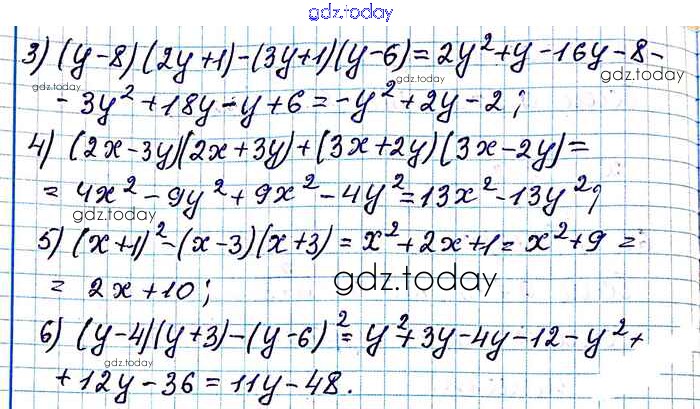 gdz.today
3) (y-8)(2y+1)-(3y+1)(y-6)=2y²+y-16y-8-
gdz.today gdz.today
-3y²+18y-y+6=-y²+2y-2;
4) (2x-3y)(2x+3y)+(3x+2y)(3x-2y)=
=4x²-9y²+9x²-4y²=13x²-13y²;
gdz.today
5) (x+1)²-(x-3)(x+3)=x²+2x+1=x²+9=
=2x+10;
gdz.today
6) (y-4)(y+3)-(y-6)²=y²+3y-4y-12-y²+
gdz.today
+12y-36=11y-48.